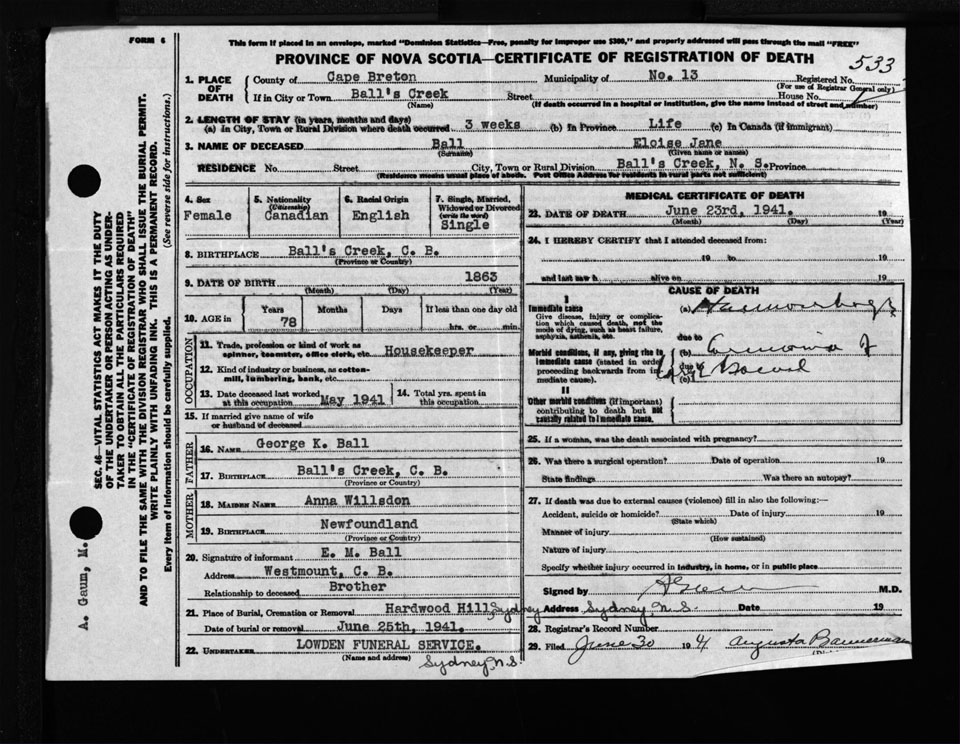 FORM 6
This form if placed in an envelope, marked "Dominion Statistics—Free, penalty for improper use $300," and properly addressed will pass through the mail "FREE"
PROVINCE OF NOVA SCOTIA—CERTIFICATE OF REGISTRATION OF DEATH
533
1. PLACE OF DEATH
County of Cape Breton Municipality of No. 13 Registered No.
(For use of Registrar General only)
If in City or Town Ball's Creek Street House No.
(Name) (If death occurred in a hospital or institution, give the name instead of street and number)
2. LENGTH OF STAY (in years, months and days)
(a) In City, Town or Rural Division where death occurred 3 weeks (b) In Province Life (c) In Canada (if immigrant)
3. NAME OF DECEASED Ball Eloise Jane
(Surname) (Given name or names)
RESIDENCE No. Street City, Town or Rural Division Ball's Creek, N. S. Province
(Residence means usual place of abode. Post Office Address for residents in rural parts not sufficient)
4. Sex
Female
5. Nationality
(Citizenship)
Canadian
6. Racial Origin
English
7. Single, Married, Widowed or Divorced
(write the word)
Single
8. BIRTHPLACE Ball's Creek, C. B.
(Province or Country)
9. DATE OF BIRTH 1863
(Month) (Day) (Year)
10. AGE in
Years Months Days If less than one day old
78 hrs. or min.
OCCUPATION
11. Trade, profession or kind of work as spinner, teamster, office clerk, etc. Housekeeper
12. Kind of industry or business, as cotton-mill, lumbering, bank, etc.
13. Date deceased last worked at this occupation May 1941
14. Total yrs. spent in this occupation
15. If married give name of wife or husband of deceased
FATHER
16. NAME George K. Ball
17. BIRTHPLACE Ball's Creek, C. B.
(Province or Country)
MOTHER
18. MAIDEN NAME Anna Willsdon
19. BIRTHPLACE Newfoundland
(Province or Country)
20. Signature of informant E. M. Ball
Address Westmount, C. B.
Relationship to deceased Brother
21. Place of Burial, Cremation or Removal Hardwood Hill, Sydney
Date of burial or removal June 25th, 1941.
22. UNDERTAKER LOWDEN FUNERAL SERVICE.
(Name and address) Sydney N.S.
MEDICAL CERTIFICATE OF DEATH
23. DATE OF DEATH June 23rd, 1941. 19
(Month) (Day) (Year)
24. I HEREBY CERTIFY that I attended deceased from:
19 to 19
and last saw h alive on 19
CAUSE OF DEATH
I
Immediate cause (a)
Give disease, injury or complication which caused death, not the mode of dying, such as heart failure, asphyxia, asthenia, etc.
due to
Morbid conditions, if any, giving rise to immediate cause (stated in order proceeding backwards from immediate cause). (b)
due to
(c) Bowel
II
Other morbid conditions (if important) contributing to death but not causally related to immediate cause.
25. If a woman, was the death associated with pregnancy?
26. Was there a surgical operation? Date of operation 19
State findings Was there an autopsy?
27. If death was due to external causes (violence) fill in also the following:—
Accident, suicide or homicide? Date of injury 19
(State which)
Manner of injury
(How sustained)
Nature of injury
Specify whether injury occurred in industry, in home, or in public place
Signed by M.D.
Address Sydney N.S. Date 19
28. Registrar's Record Number
29. Filed June 30 1941 Augusta Bannerman
SEC. 46—VITAL STATISTICS ACT MAKES IT THE DUTY
OF THE UNDERTAKER OR PERSON ACTING AS UNDER-
TAKER TO OBTAIN ALL THE PARTICULARS REQUIRED
IN THE "CERTIFICATE OF REGISTRATION OF DEATH"
AND TO FILE THE SAME WITH THE DIVISION REGISTRAR WHO SHALL ISSUE THE BURIAL PERMIT.
WRITE PLAINLY WITH UNFADING INK. THIS IS A PERMANENT RECORD.
Every item of information should be carefully supplied. (See reverse side for instructions.)
A. Gaum, M.